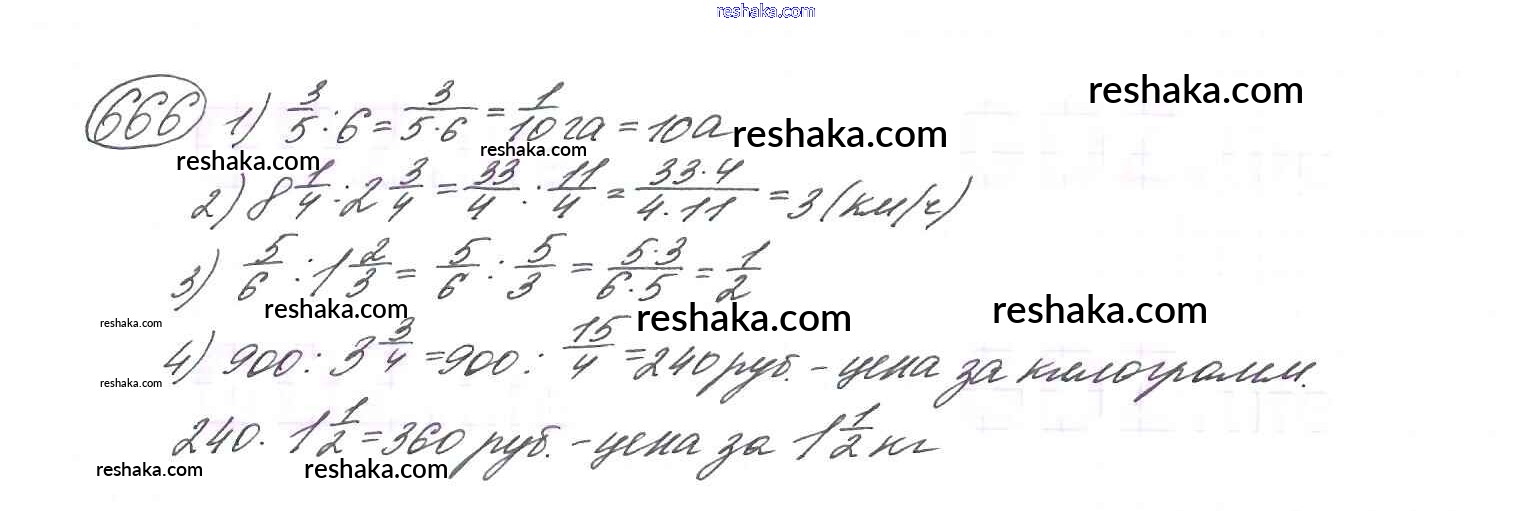 reshaka.com
666 1) 3/5 : 6 = 3/(5·6) = 1/10 га = 10а
reshaka.com
reshaka.com
reshaka.com
reshaka.com
2) 8 1/4 : 2 3/4 = 33/4 · 11/4 = (33·4)/(4·11) = 3 (км/ч)
3) 5/6 : 1 2/3 = 5/6 : 5/3 = (5·3)/(6·5) = 1/2
reshaka.com
reshaka.com
reshaka.com
reshaka.com
4) 900 : 3 3/4 = 900 : 15/4 = 240 руб. - цена за килограмм.
reshaka.com
240 · 1 1/2 = 360 руб. - цена за 1 1/2 кг
reshaka.com
reshaka.com